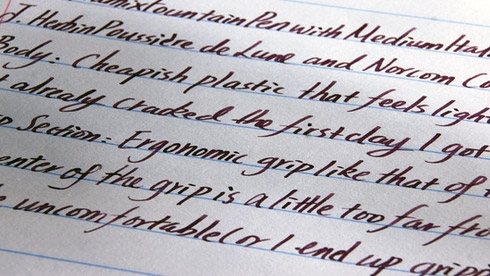 FountainPen with Medium
J. Herbin Poussière de Lune and Norcom Co
Body: Cheapish plastic that feels light
already cracked the first day I got
Section: Ergonomic grip like that of
enter of the grip is a little too far fro
uncomfortable (or I end up